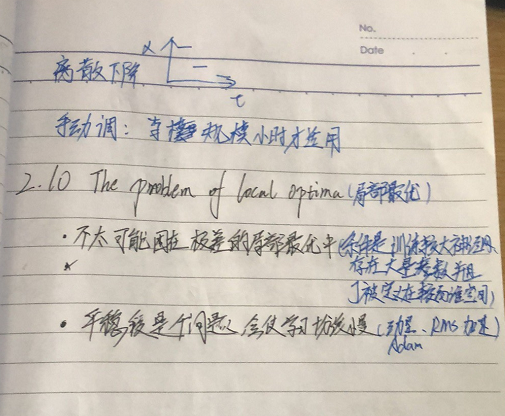 No.
Date
α
离散下降
t
手动调： 规模小时才适用
2.10 The problem of local optima (局部最优)
· 不太可能困在极差的局部最优中 (条件是训练较大神经网络
存在大量参数并且
J被定义在较高维空间)
· 平稳段是个问题，会使学习 慢 (动量、RMS 加速)
Adam